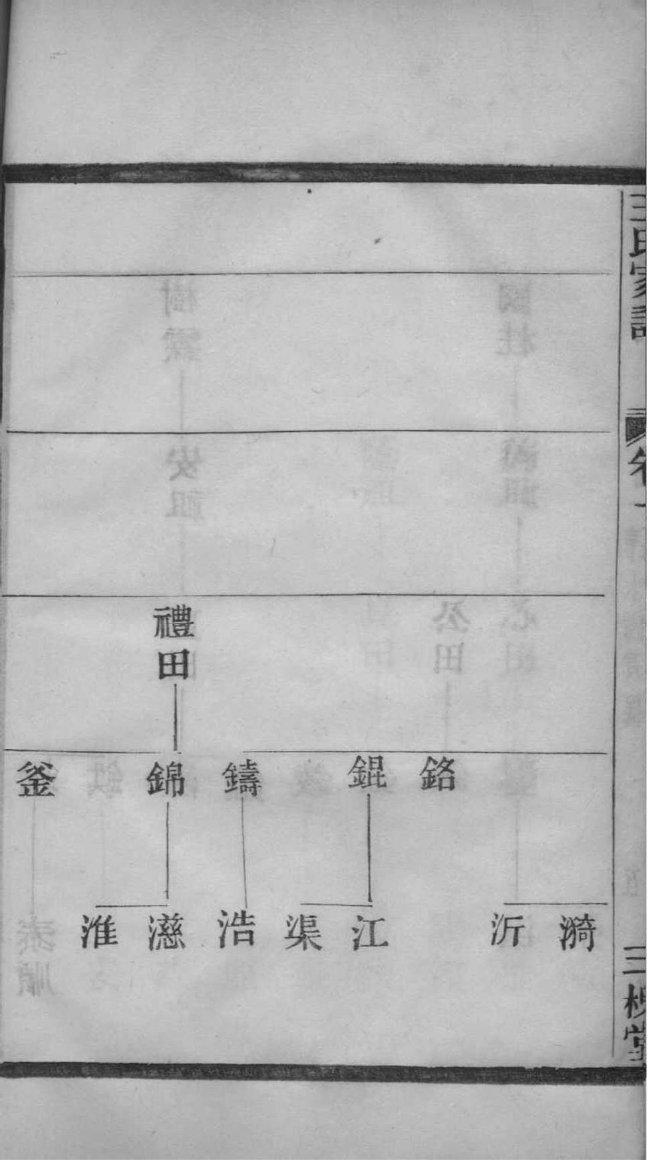 王氏家譜
卷一
三槐堂
禮田
銘
錕
鑄
錦
釜
漪
沂
江
渠
浩
濨
淮